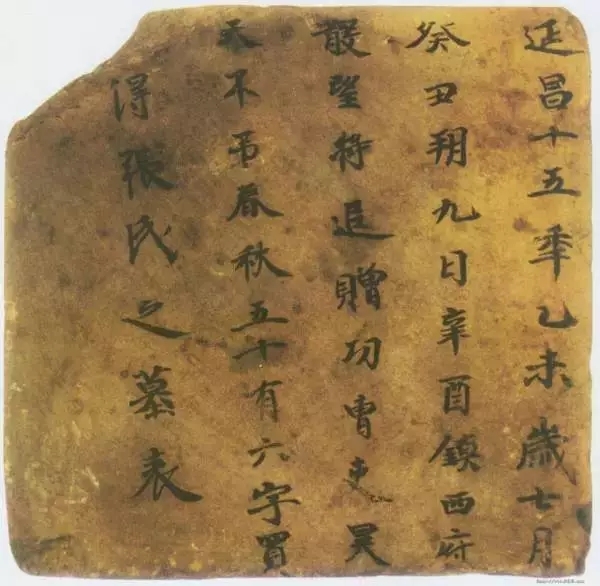 延昌十五秊乙未歲七月
癸丑朔九日辛酉鎮西府
散望將追贈功曹吏昊
天不弔春秋五十有六字買
淂張氏之墓表